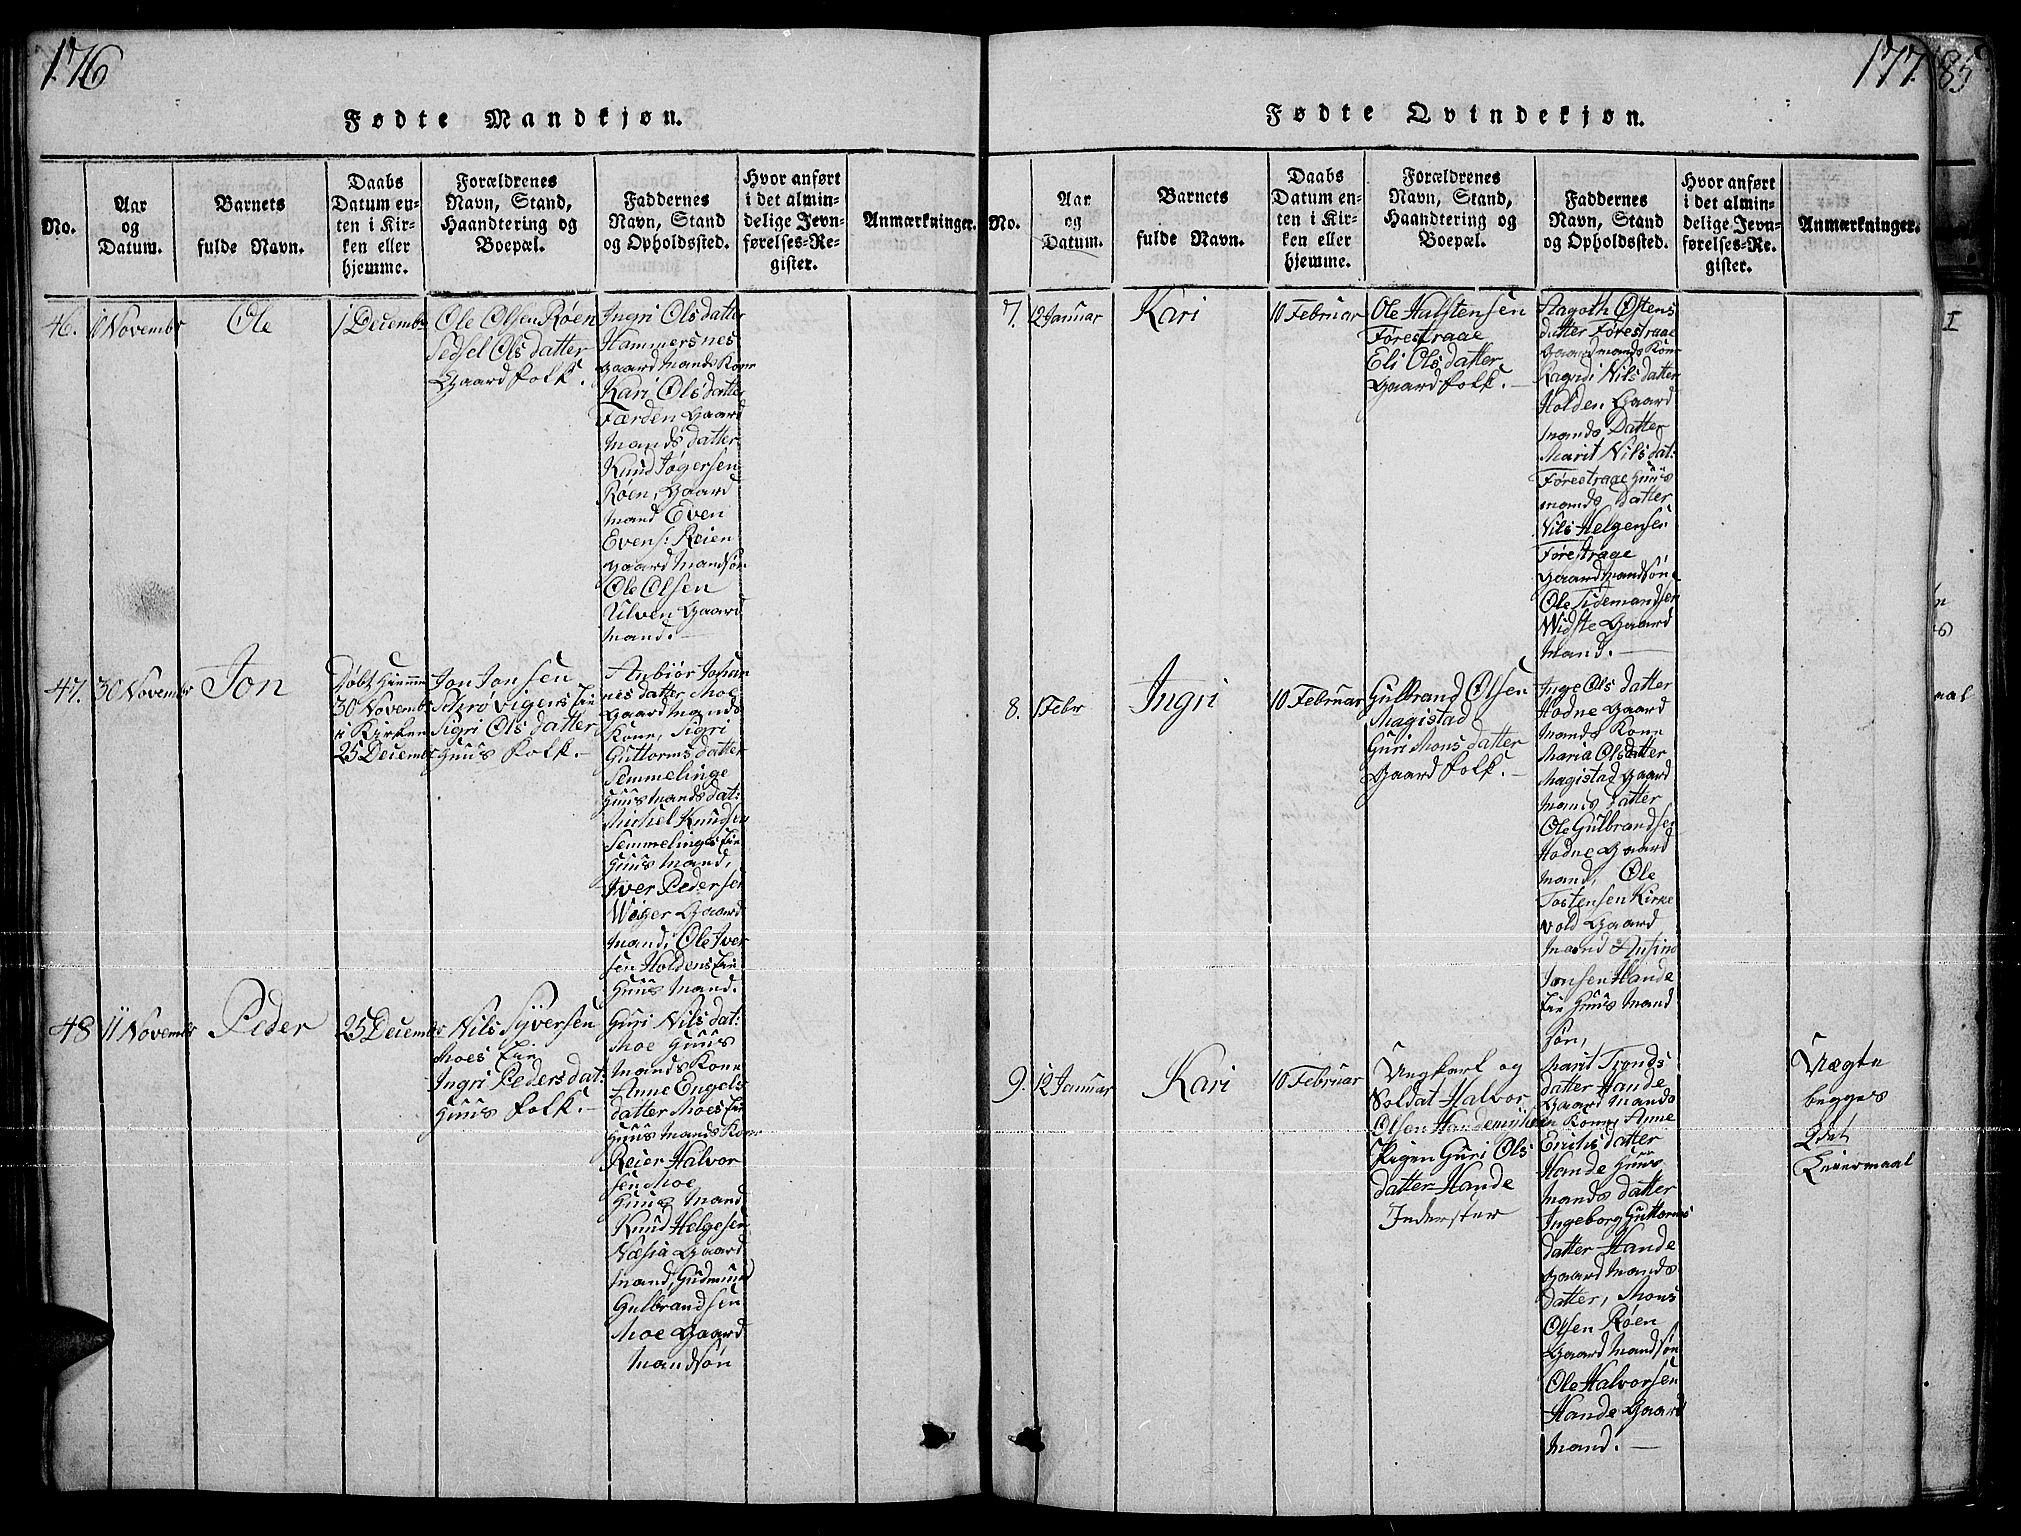 176
Fødte Mandkjøn.
No.
Aar
og
Datum.
Barnets
fulde Navn.
Daabs
Datum en-
ten i Kir-
ken eller
hjemme.
Forældrenes
Navn, Stand,
Haandtering og
Boepæl.
Faddernes
Navn, Stand
og Opholdssted.
Hvor anført
i det almin-
delige Jevn-
førelses-Re-
gister.
Anmærkninger.
46.
Novembr
Ole
1 Decembr
Ole Olsen Røen
Sedsel Olsdatter
Gaard folk.
Ingri Olsdatter
Hammersnes
Gaard Mands Kone
Kari Olsdatter
Færden Gaard
mands datter
Knud Jøgersen
Røen, Gaard
mand Even
Evens: Reien
Gaard Mandsøn
Ole Olsen
Ulven Gaard
mand. —
47.
30 Novembr
Jon
Døbt Hiemme
30 Novembr
i Kirken
25 Decembr
Jon Jonsen
Sigri Olsdatter
Huus folk. —
Anbiør Johan
nesdatter Moe
Gaard Mands
Kone, Sigri
Guttormsdatter
Semmelinge
Huus Mands dat:
Michel Knudsen
Semmelings Eie
Huus Mand,
Iver Pedersen
Gaard
mand, Ole Iver
sen Holdens Eie
Huus Mand.
48
11 Novembr
Peder
25 Decembr
Nils Syversen
Moes Eie
Ingri Peders dat:
Huus folk. —
Guri Nils dat:
Moe Huus
Mands Kone
Anne Engels
datter Moes Eie
Huus Mands Kone
Reier Halvor
sen Moe
Huus Mand
Knud Helgesen
Næsia Gaard
mand, Gudmund
Gulbrandsen
Moe Gaard
Mandsøn
177
85
Fødte Qvindekjøn.
No.
Aar
og
Datum.
Barnets
fulde Navn.
Daabs
Datum en-
ten i Kir-
ken eller
hjemme.
Forældrenes
Navn, Stand,
Haandtering og
Boepæl.
Faddernes
Navn, Stand
og Opholdssted.
Hvor anført
i det almin-
delige Jevn-
førelses-Re-
gister.
Anmærkninger.
7.
12 Januar
Kari
10 Februar
Ole Halstensen
Førestraae
Eli Olsdatter
Gaard folk. —
Østens
datter Førestraae
Gaard mands Kone
Ragndi Nilsdatter
Holden Gaard
mands Datter
Marit Nils dat:
Førestraae Huus
mands Datter
Nils Helgensen
Førestraae
Gaard Mandsøn
Ole Tidemandsen
Widste Gaard
Mand. —
8.
1 Febr
Ingri
10 Februar
Gulbrand Olsen
Magistad
Guri Mons datter
Gaard folk. —
Inge Ols datter
Hodne Gaard
Mands Kone
Maria Olsdatter
Magistad Gaard
Mands Datter
Ole Gulbrandsen
Hodne Gaard
mand, Ole
Tostensen Kirke
vold Gaard
mand
Jonsen Hande
Eie Huus Mand
søn,
9.
12 Januar
Kari
10 Februar
Ungkarl og
Soldat Halvor
Olsen
Pigen Guri Ols
datter Hande
Inderster
Marit Tronds
datter Hande
Gaard Mands
Kone, Anne
Erichsdatter
Hande Huus
Mands datter
Ingeborg Guttorms
datter Hande
Gaard Mands
datter, Mons
Olsen Røen
Gaard Mandsøn
Ole Halvorsen
Hande Gaard
Mand. —
Uægte
begges
2det
Leiermaal
I